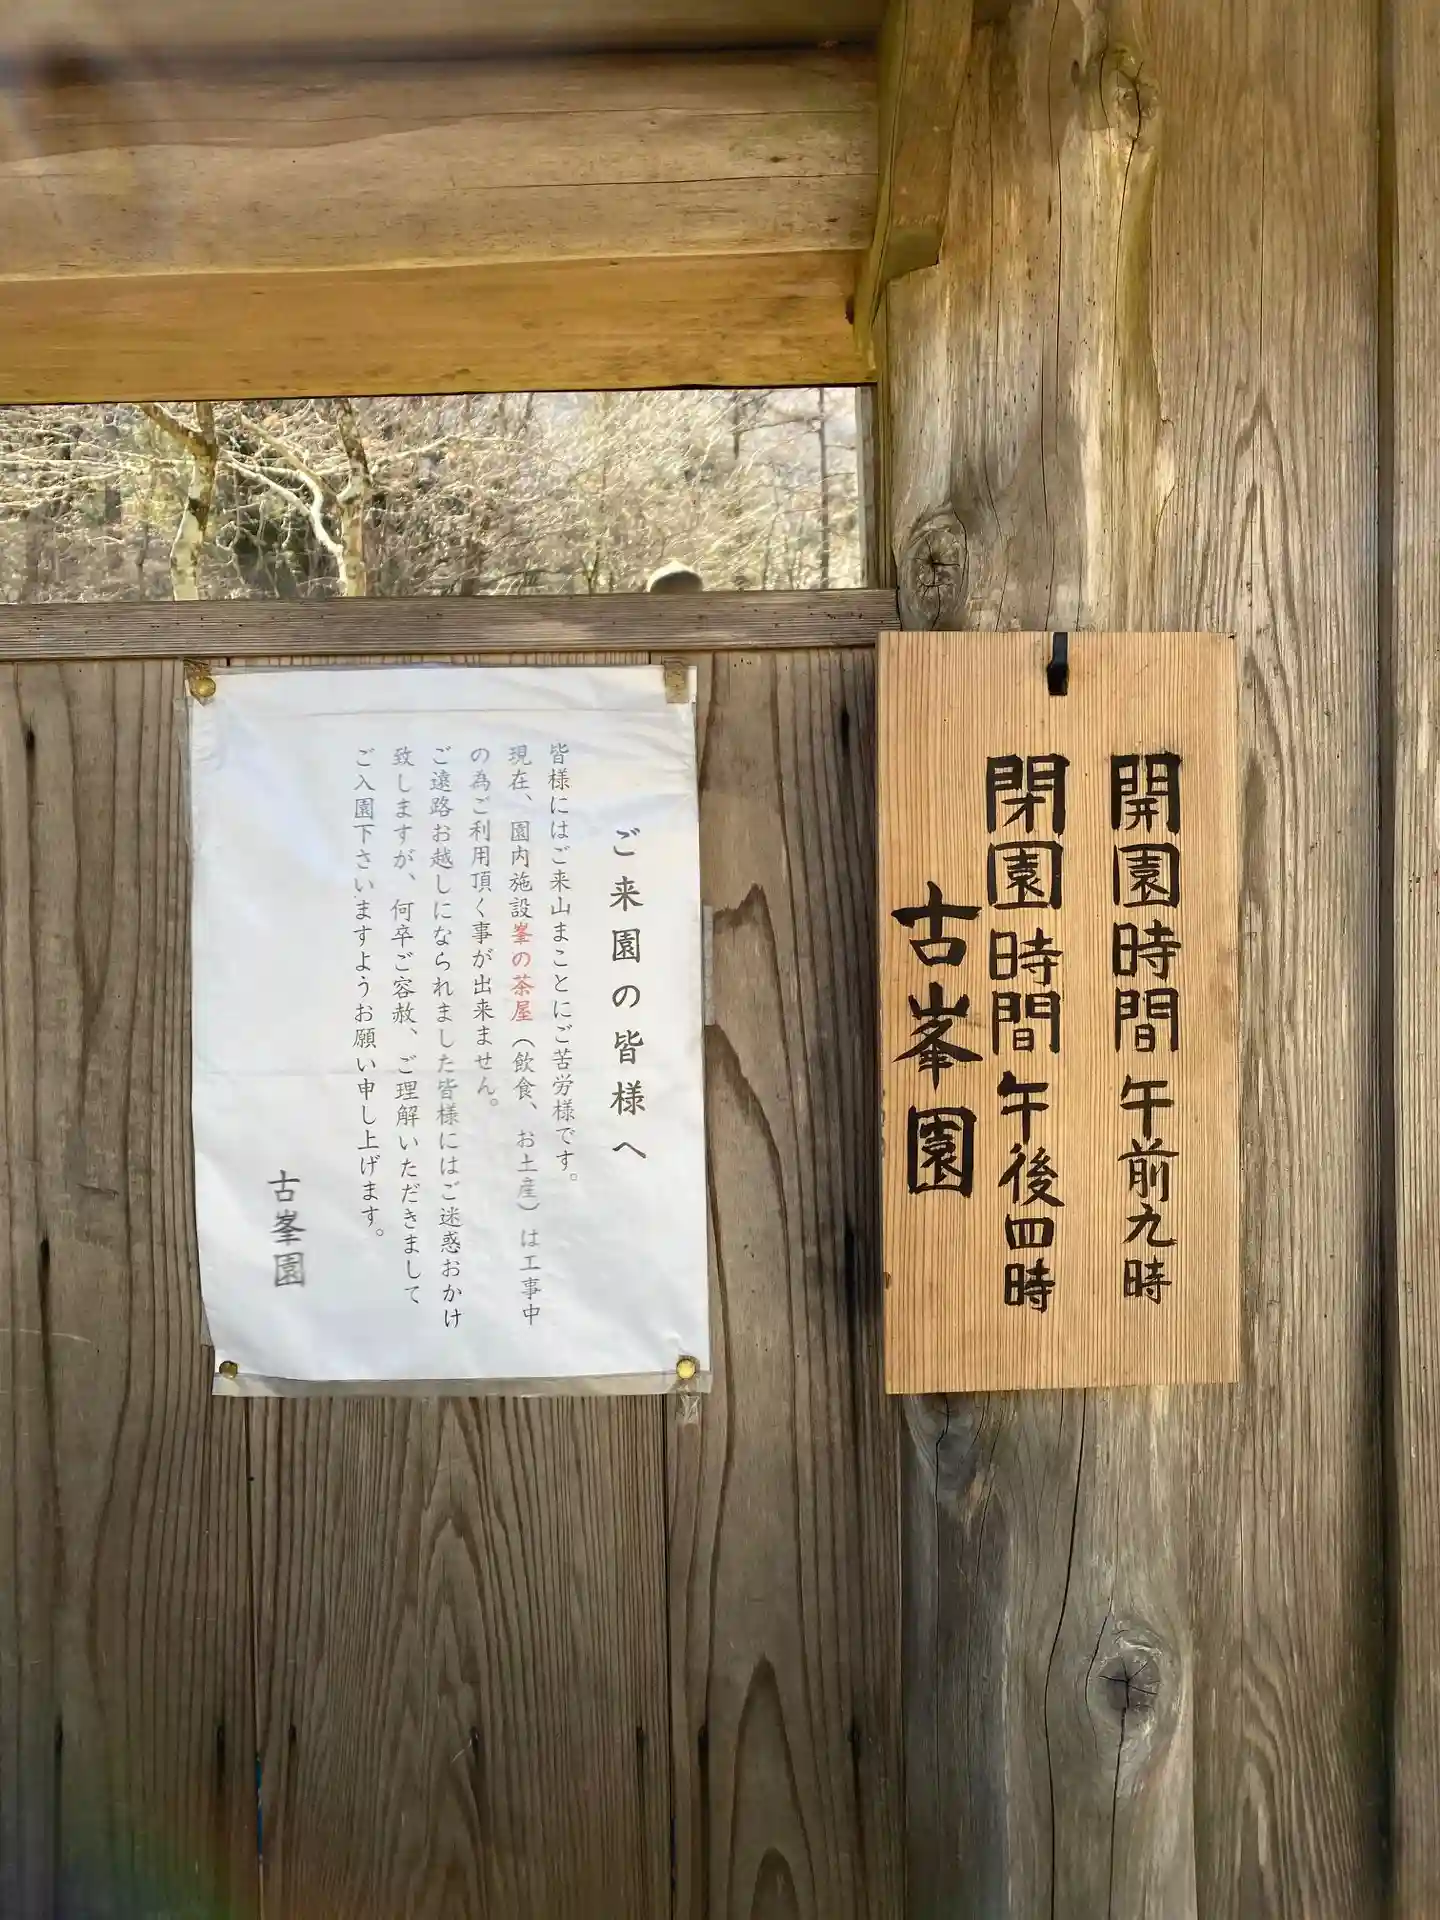 開園時間 午前九時
閉園時間 午後四時
古峯園
ご来園の皆様へ
皆様にはご来山まことにご苦労様です。
現在、園内施設峯の茶屋(飲食、お土産)は工事中
の為ご利用頂く事が出来ません。
ご遠路お越しになられました皆様にはご迷惑おかけ
致しますが、何卒ご容赦、ご理解いただきまして
ご入園下さいますようお願い申し上げます。
古峯園